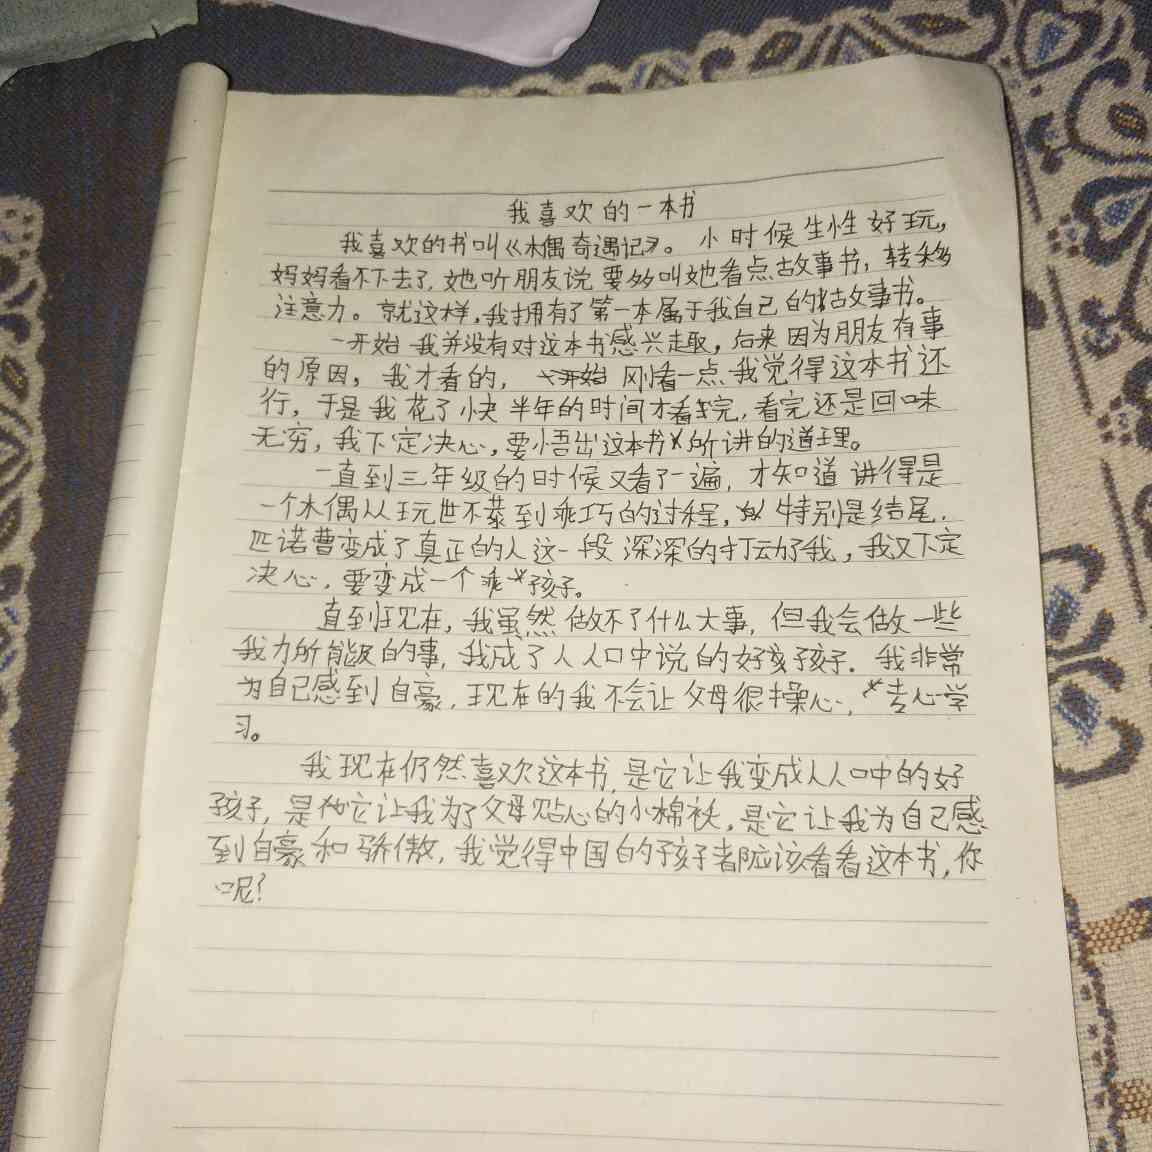 我喜欢的一本书
我喜欢的书叫《木偶奇遇记》。小时候生性好玩,
妈妈看不下去了,她听朋友说要多叫她看点故事书,转移
注意力。就这样,我拥有了第一本属于我自己的故事书。
一开始我并没有对这本书感兴趣,后来因为朋友有事
的原因,我才看的,刚看一点我觉得这本书还
行,于是我花了快半年的时间才看完,看完还是回味
无穷,我下定决心,要悟出这本书所讲的道理。
一直到三年级的时候又看了一遍,才知道讲得是
一个木偶从玩世不恭到乖巧的过程,特别是结尾.
匹诺曹变成了真正的人这一段深深的打动了我,我又下定
决心,要变成一个乖孩子。
直到现在,我虽然做不了什么大事,但我会做一些
我力所能及的事,我成了人人口中说的好孩子孩子.我非常
为自己感到自豪,现在的我不会让父母很操心,专心学
习。
我现在仍然喜欢这本书,是它让我变成人人口中的好
孩子,是它让我为了父母贴心的小棉袄,是它让我为自己感
到自豪和骄傲,我觉得中国的孩子都应该看看这本书,你
呢?